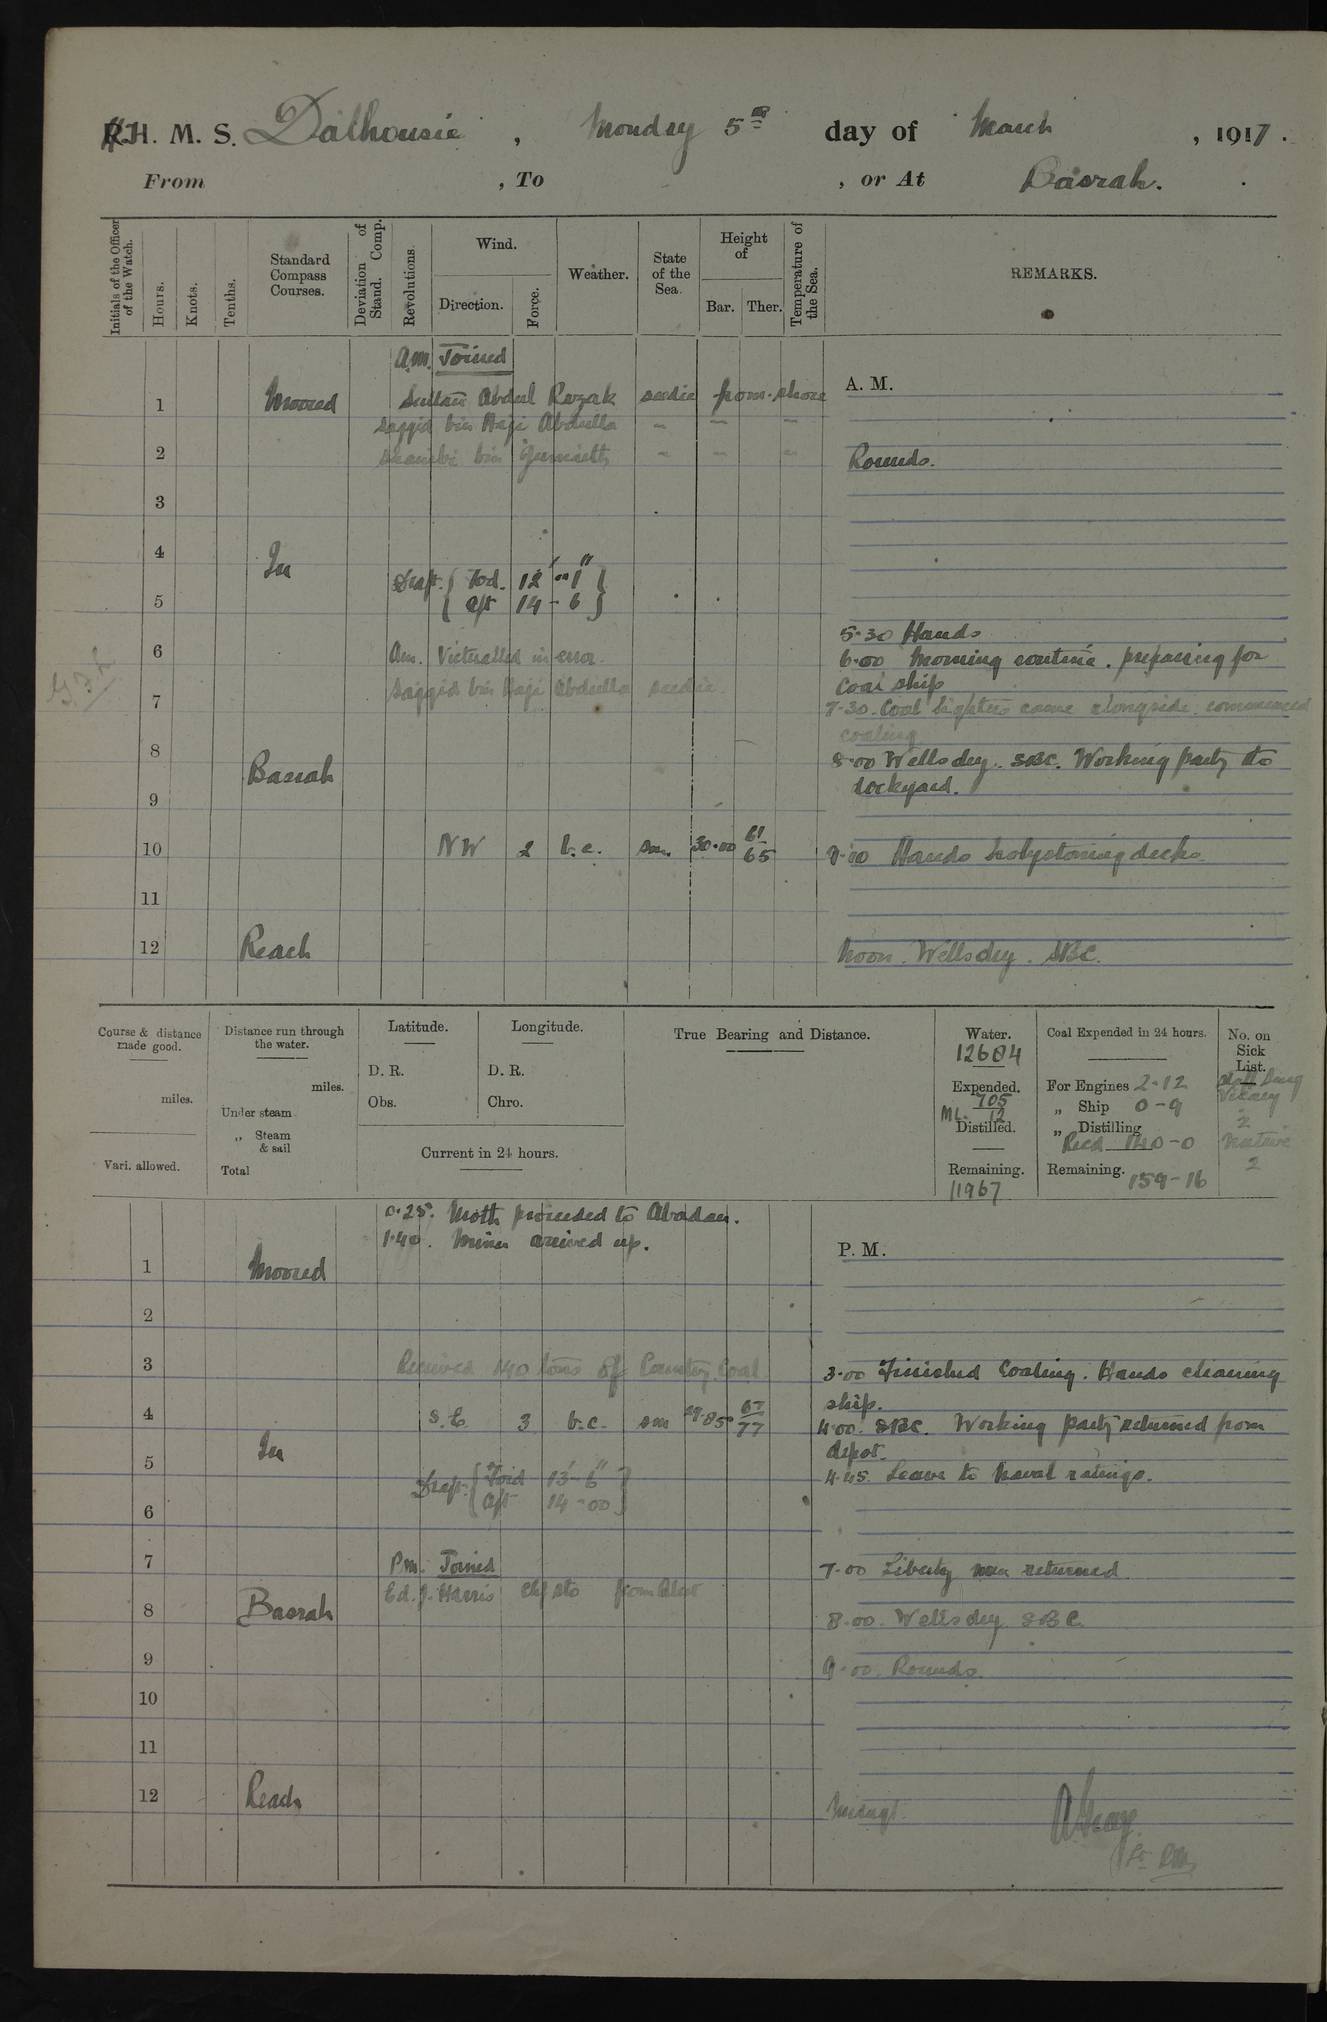 H. M. S. Dalhousie , Monday 5th day of March , 1917 .
From , To , or At Basrah.
Initials of the Officer of the Watch.
Hours.
Knots.
Tenths.
Standard Compass Courses.
Deviation of Stand. Comp.
Revolutions.
Wind.
Direction.
Force.
Weather.
State of the Sea.
Height of
Bar.
Ther.
Temperature of the Sea.
REMARKS.
A.M. Joined
A. M.
1 Moored Sultan Abdul Razak seedie from shore
Saggid bin Haji Abdulla - - -
2 bin - - - Rounds.
3
4
In
Draft. { Fod. 12' - 1" }
5 { Aft 14 - 6 }
5.30 Hands
6 Am. Victualled in error. 6.00 Morning routine. preparing for
coal ship
7 Saggid bin Haji Abdulla seedie 7.30. Coal lighters came alongside. commenced
coaling
8 8.00 Wells dry. SBC. Working party to
Basrah dockyard.
9
10 NW 2 b.c. sm. 30.00 61/65 9.00 Hands holystoning decks.
11
12 Reach Noon. Wells dry. SBC.
Course & distance made good.
miles.
Vari. allowed.
Distance run through the water.
miles.
Under steam
„ Steam & sail
Total
Latitude.
D. R.
Obs.
Longitude.
D. R.
Chro.
Current in 24 hours.
True Bearing and Distance.
Water.
12684
Expended.
705
ML. 12
Distilled.
Remaining.
11967
Coal Expended in 24 hours.
For Engines 2-12
„ Ship 0-9
„ Distilling
Recd 140-0
Remaining. 159-16
No. on Sick List.
2
Native
2
0.25. Moth proceeded to Abadan.
1.40. Miner arrived up.
P. M.
1 Moored
2
3 Received 140 tons of Country Coal 3.00 Finished Coaling. Hands cleaning
ship.
4 S.E. 3 b.c. sm 29.85 67/77 4.00. SBC. Working party returned from
In depot.
5 4.45. Leave to Naval ratings.
Draft. { Foid 13' - 6" }
{ Aft 14 - 00 }
6
7 P.M. Joined 7.00 Liberty men returned
Ed. J. Harris Chf sto from Alert
8 Basrah 8.00. Wells dry SBC
9 9.00. Rounds.
10
11
12 Reach Midngt.